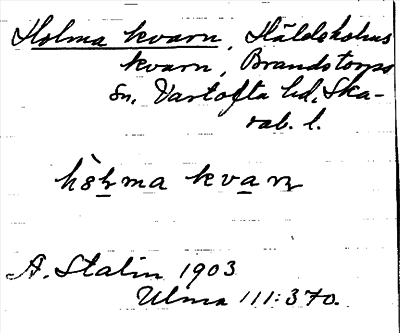 Holma kvarn, Häldeholms
kvarn, Brandstorps
sn, Vartofta hd, Ska-
rab. l.
hòlma kvaɳ
A. Stalin 1903
Ulma 111:370.